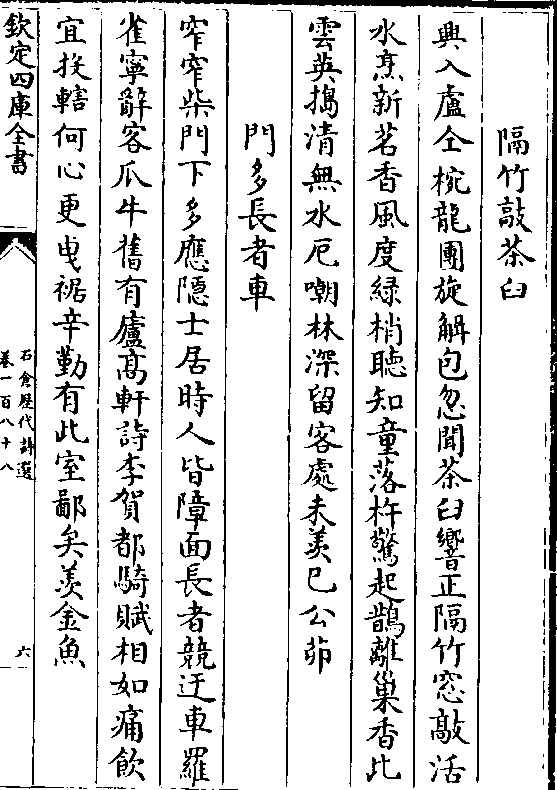 隔竹敲茶臼
興入盧仝椀龍團旋解包忽聞茶臼響正隔竹窓敲活
水烹新茗香風度緑梢聴知童落杵驚起鵲離巢香比
雲英搗清無水厄嘲林深留客處未羡巳公茆
門多長者車
窄窄柴門下多應隠士居時人皆障面長者競迂車羅
雀寧辭客爪牛舊有廬髙軒詩李賀都騎賦相如痛飲
宜投轄何心更曵裾辛勤有此室鄙矣羡金魚
欽定四庫全書
石倉歴代詩選
卷一百八十八
六